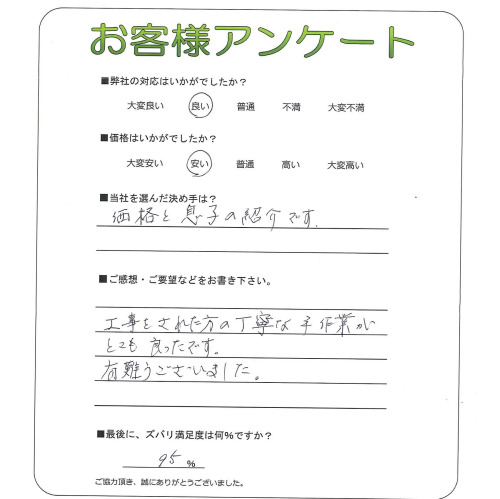 お客様アンケート
■弊社の対応はいかがでしたか?
大変良い 良い 普通 不満 大変不満
■価格はいかがでしたか?
大変安い 安い 普通 高い 大変高い
■当社を選んだ決め手は?
価格と息子の紹介です.
■ご感想・ご要望などをお書き下さい。
工事をされた方の丁寧な手作業が
とても良ったです。
有難うございました。
■最後に、ズバリ満足度は何%ですか?
95 %
ご協力頂き、誠にありがとうございました。